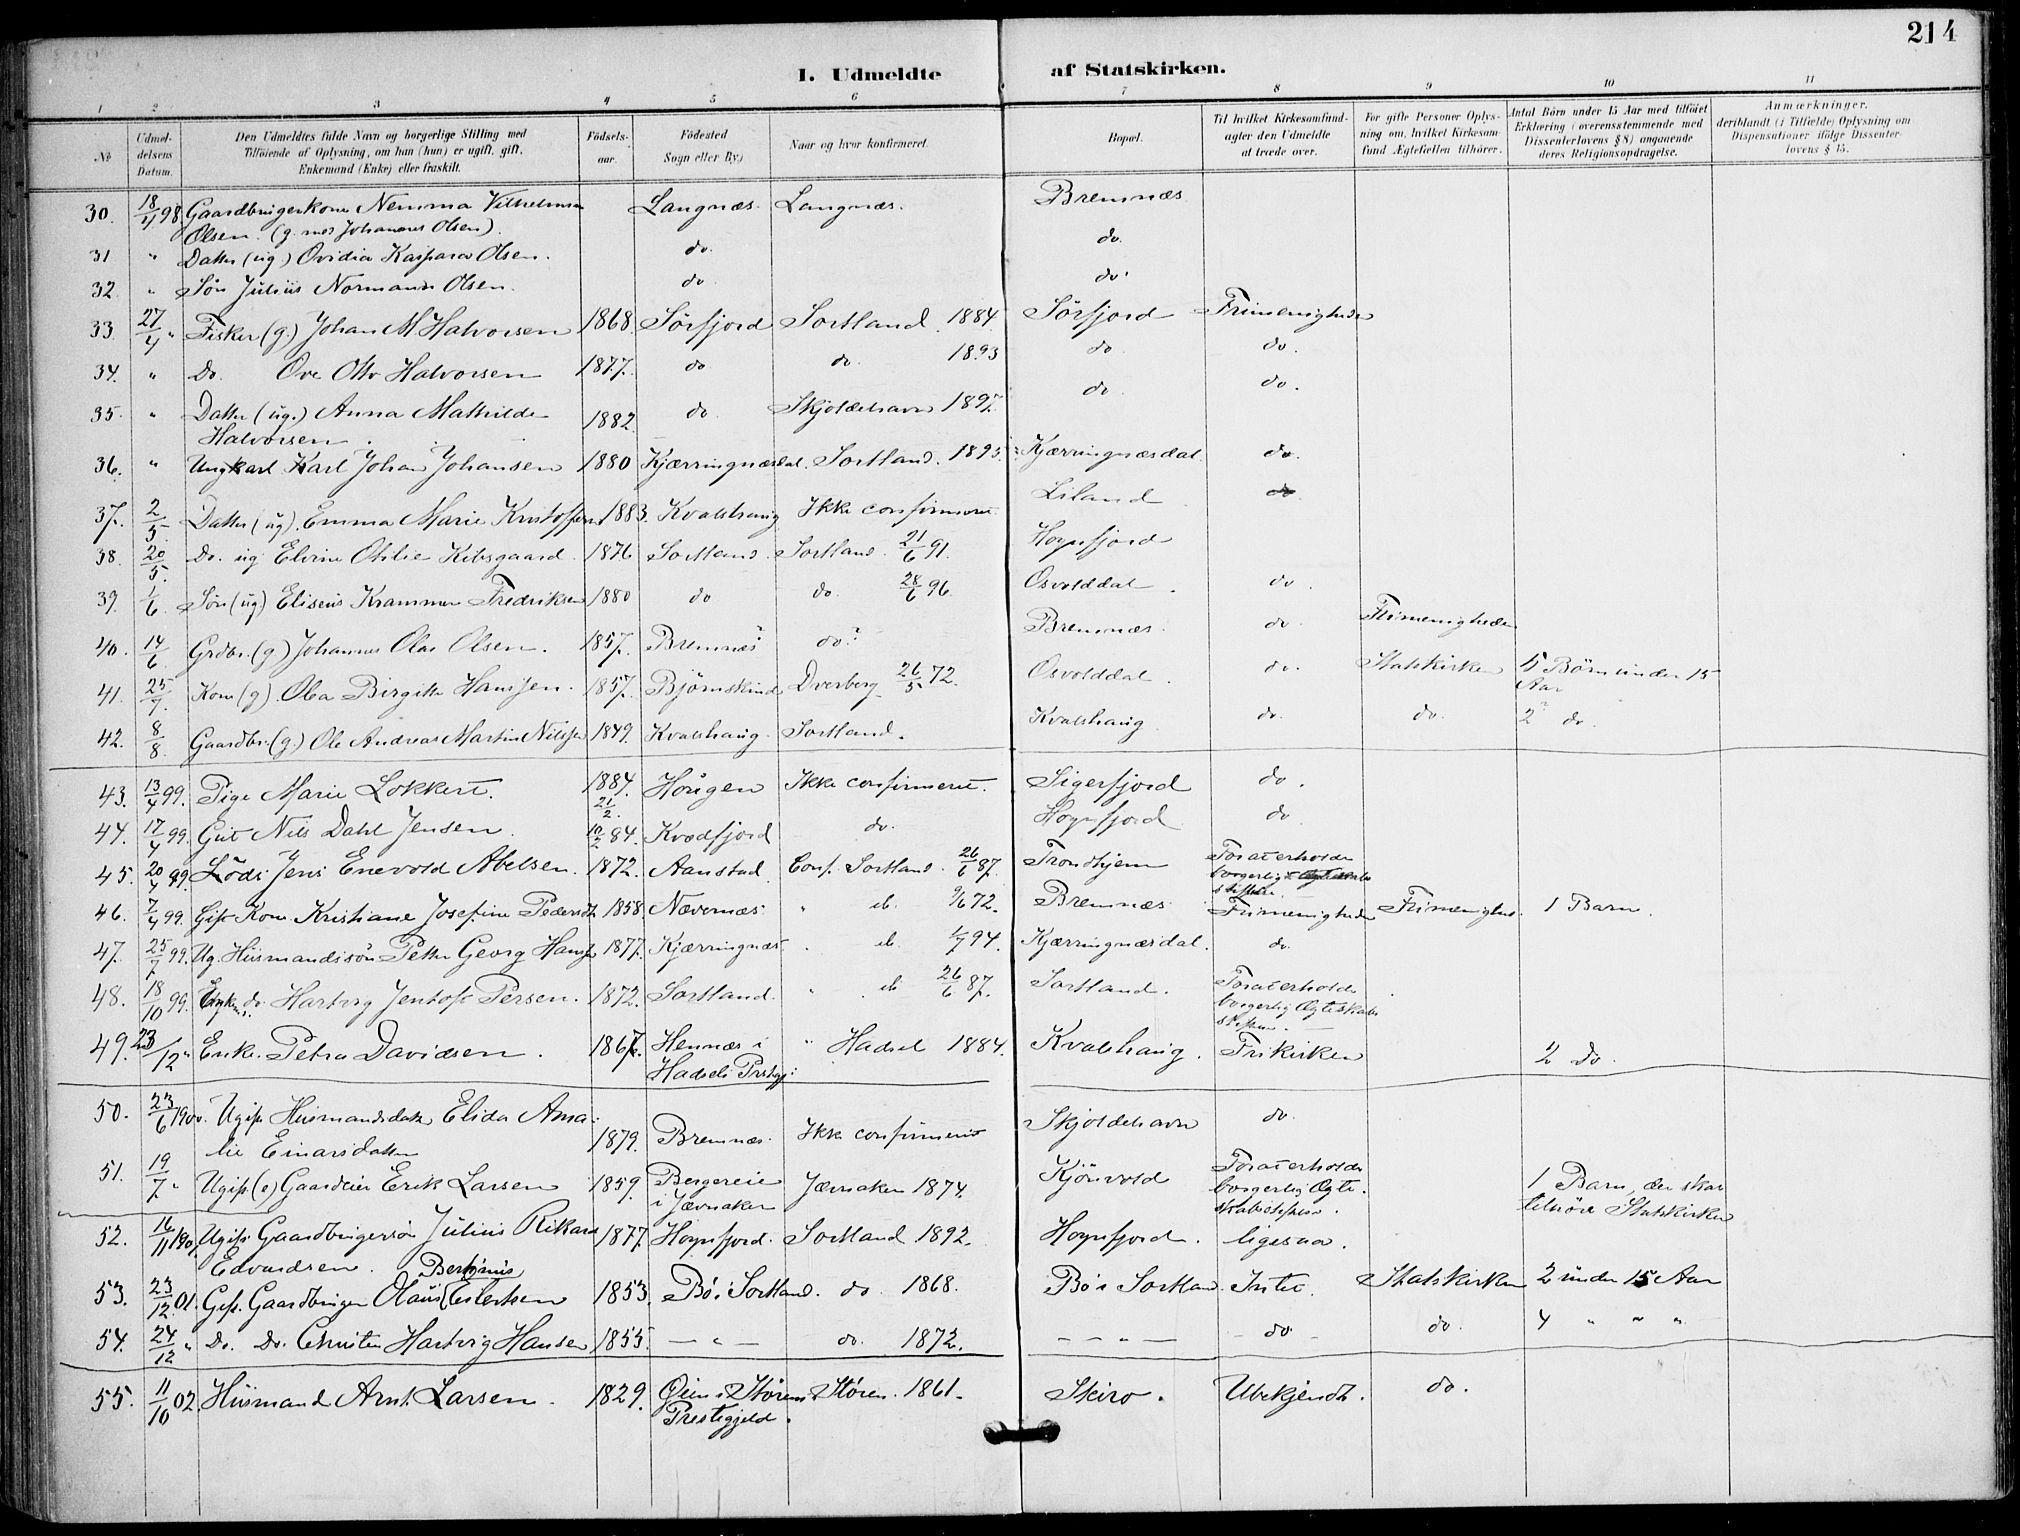 214
I. Udmeldte af Statskirken.
1 2 3 4 5 6 7 8 9 10 11
No
Udmeldelsens Datum.
Den Udmeldtes fulde Navn og borgerlige Stilling med
Tilföiende af Oplysning, om han (hun) er ugift, gift,
Enkemand (Enke) eller fraskilt.
Födselsaar.
Födested
Sogn eller By.)
Naar og hvor konfirmeret.
Bopæl.
Til hvilket Kirkesamfund
agter den Udmeldte
at træde over.
For gifte Personer Oplysning om, hvilket Kirkesamfund Ægtefællen tilhörer.
Antal Börn under 15 Aar med tilföiet
Erklæring (overensstemmende med
Dissenterlovens § 8) angaaende
deres Religionsopdragelse.
Anmærkninger,
deriblandt (i Tilfælde) Oplysning om
Dispensationer ifölge Dissenterlovens § 15.
30. 18/4 98 Gaardbrugerkone Nemma Vilhelmina Langnæs. Langnæs. Bremnæs
Olsen. (g. med Johannes Olsen).
31 " Datter (ug.) Ovidia Kaspara Olsen. do. do.
32 " Søn Julius Normann Olsen. do do.
33. 27/4 " Fisker (g.) Johan M. Halvorsen 1868. Sörfjord Sortland 1884. Sörfjord Frimenigheden
34. " Do. Ove Otto Halvorsen 1877. do do 1893 do do.
35. " Datter (ug.) Anna Mathilde 1882. do. Skjoldehavn 1897. do do.
Halvorsen.
36. " Ungkarl Karl Johan Johansen 1880 Kjærringnæsdal. Sortland. 1895. Kjærringnæsdal. do.
37. 2/5 Datter (ug). Emma Marie Kristoffersen 1883. Kvalshaug Ikke confirmeret Liland do
38. 20/5. Do. ug Elvine Otilie Kibsgaard. 1876 Sortland. Sortland. 21/6 91. Hognfjord
39. 1/6. Søn (ug.) Eliseus Krammer Fredriksen 1880 do do. 28/6 96. Osvolddal. do.
40. 14/6 Grdbr. (g.) Johannes Olai Olsen. 1857. Bremnæs? do? Bremnæs. do Frimenigheden
41. 25/7. Kone (g). Olea Birgitte Hanssen. 1857. Björnskind Dverberg 26/5 72. Osvolddal. do. Statskirken 5 Börn under 15
Aar
42. 8/8 Gaardbr. (g.) Ole Andreas Martin Nilssen 1849. Kvalshaug. Sortland. Kvalshaug do. do. 2? do.
43. 13/4 99. Pige Marie Lökkert. 1884. 21/2. Hougen Ikke confirmeret. Sigerfjord do.
44. 17/4 99. Gut Nils Dahl Jensen. 10/2 84. Kvædfjord do. Hognfjord do
45. 20/4 99. Lods Jens Enevold Abelsen. 1872. Aanstad Conf. Sortland. 26/6 87. Trondhjem For at erholde
borgerligt Ægteskabs
stiftelse.
46. 7/4 99. Gift Kone Kristiane Josefine Pedersdtr 1858. Nævernæs. " ib. 9/6 72. Bremnæs Frimenigheden Frimenighed. 1 Barn.
47. 25/7 99. Ug. Husmandssøn Petter Georg Hansen 1877. Kjærringnæs " ib. 1/7 94. Kjærringnæsdal. do.
48. 18/10 99. do. Hartvig Jentoft Persen. 1872. Sortland. " ib 26/6 87. Sortland. For at erholde
borgerlig Ægteskabs
stiftelse.
49. 23/12 " Enke. Petra Davidsen. 1867. Hennæs i " Hadsel 1884. Kvalshaug. Frikirken 2 do.
Hadsels Prstgj:
50. 23/6 1900. Ugift Husmandsdatter Elida Ama- 1879. Bremnæs. Ikke confirmeret Skjoldehavn do.
lie Einarsdatter
51. 19/7 " Ugift (e) Gaardeier Erik Larsen 1859. Bergereie Jævnaker 1874. Kjönvold For at erholde 1 Barn, der skal
i Jævnaker borgerlig Ægte- tilhöre Statskirken
skabsstiftelse.
52. 16/11 1901 Ugift Gaardbrugersøn Julius Rikard 1877. Hognfjord. Sortland 1892. Hognfjord. ligesaa.
Edvardsen.
Bertinius
53. 23/12 01. Gift. Gaardbruger Olaus Eilertsen 1853. Bø i Sortland. do. 1868. Bø i Sortland. Intet. Statskirken 2 under 15 Aar
54. 24/12 " Do. Do. Christen Hartvig Hansen 1855. — " — do. 1872. — — " — — do — do. 4 " " "
55. 11/10 02. Husmand Arnt Larsen. 1829. Øien i Størens Støren. 1861. Skiro. Ubekjendt. do.
Prestegjeld.